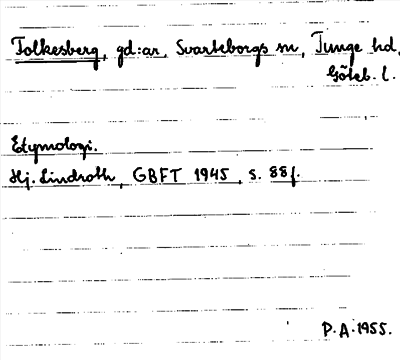 Tolkesberg, gd:ar, Svarteborgs sn, Tunge hd,
Göteb. l.
Etymologi.
Hj. Lindroth, GBFT 1945, s. 88f.
P.A. 1955.